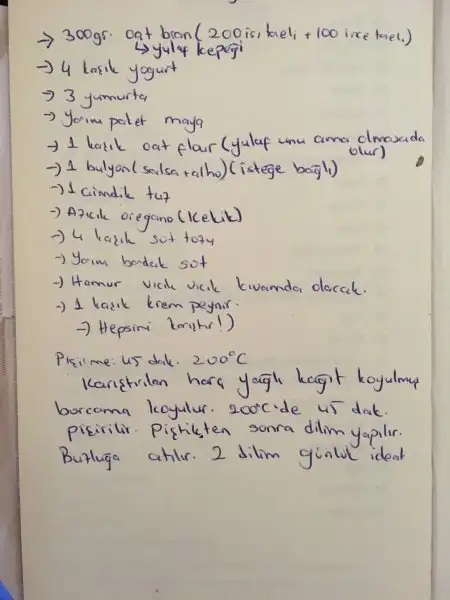 → 300gr. oat bran (200 iri taneli + 100 ince taneli.)
↳ yulaf kepeği
→ 4 kaşık yogurt
→ 3 yumurta
→ Yarım paket maya
→ 1 kaşık oat flour (yulaf unu ama olmasada
olur)
→ 1 bulyon (salsa + alho) (isteğe bağlı)
→ 1 cimdik tuz
→ Azıcık oregano (Kekik)
→ 4 kaşık süt tozu
→ Yarım bardak süt
→ Hamur vıcık vıcık kıvamda olacak.
→ 1 kaşık krem peynir.
→ Hepsini karıştır!)
Pişirme: 45 dak. 200°C
Karıştırılan harç yağlı kağıt koyulmuş
borcama koyulur. 200°C'de 45 dak.
pişirilir. Piştikten sonra dilim yapılır.
Buzluğa atılır. 2 dilim günlük ideal